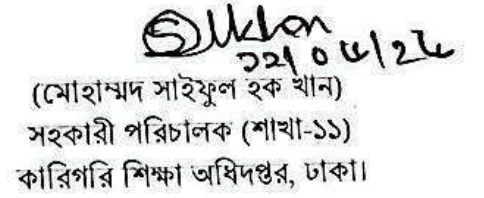 (মোহাম্মদ সাইফুল হক খান)
সহকারী পরিচালক (শাখা-১১)
কারিগরি শিক্ষা অধিদপ্তর, ঢাকা।